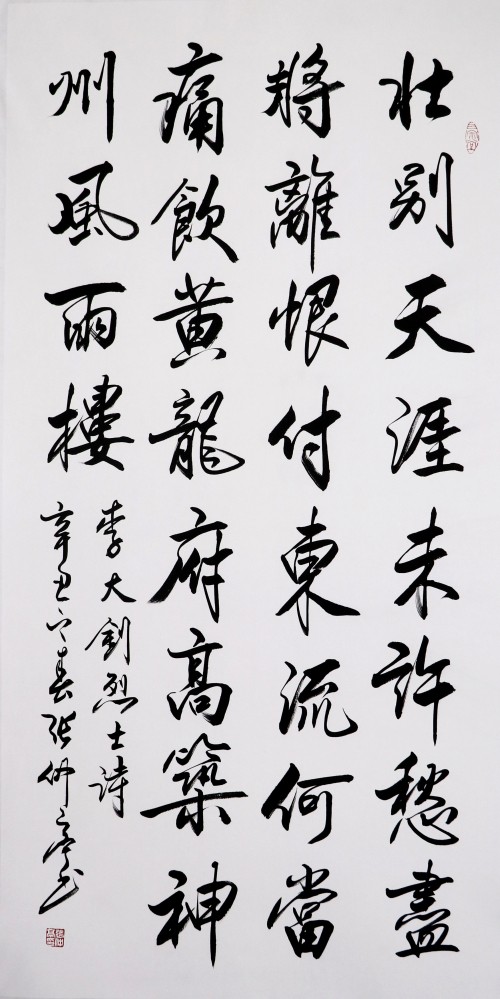 壮別天涯未許愁盡
將離恨付東流何當
痛飲黄龍府高築神
州風雨樓
李大釗烈士詩
辛丑之春張仲亭书